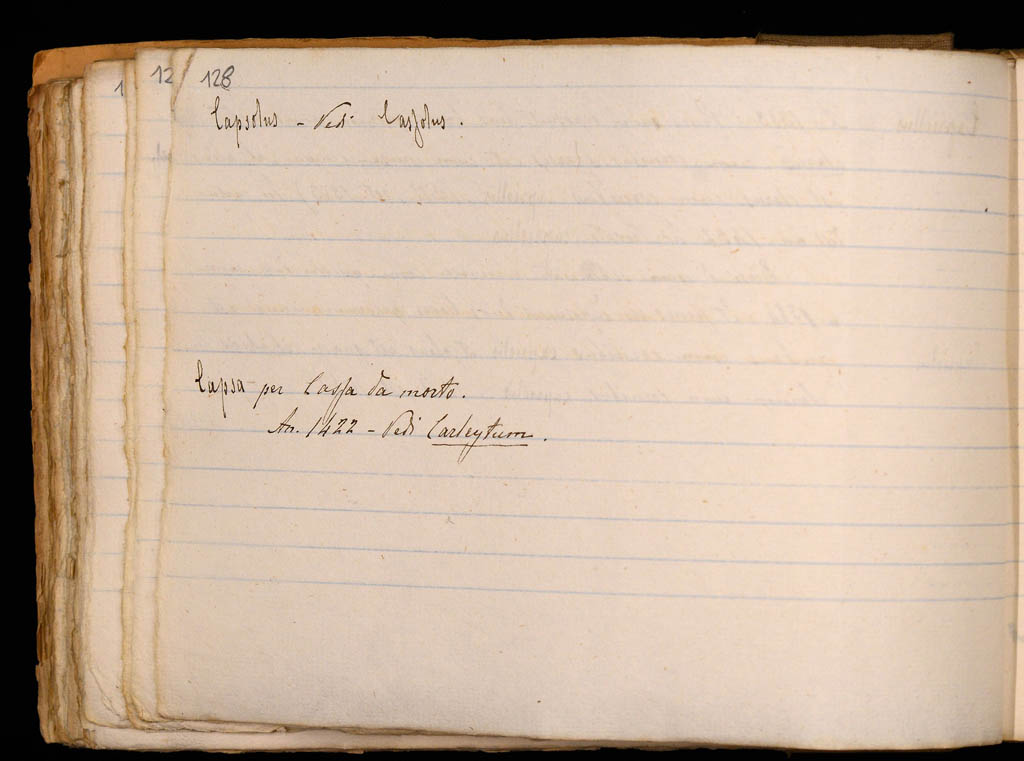 128
12
1
Capsolus - Vedi Cassolus.
Capsa - per Cassa da morto.
An. 1422 - Vedi Carleytum.